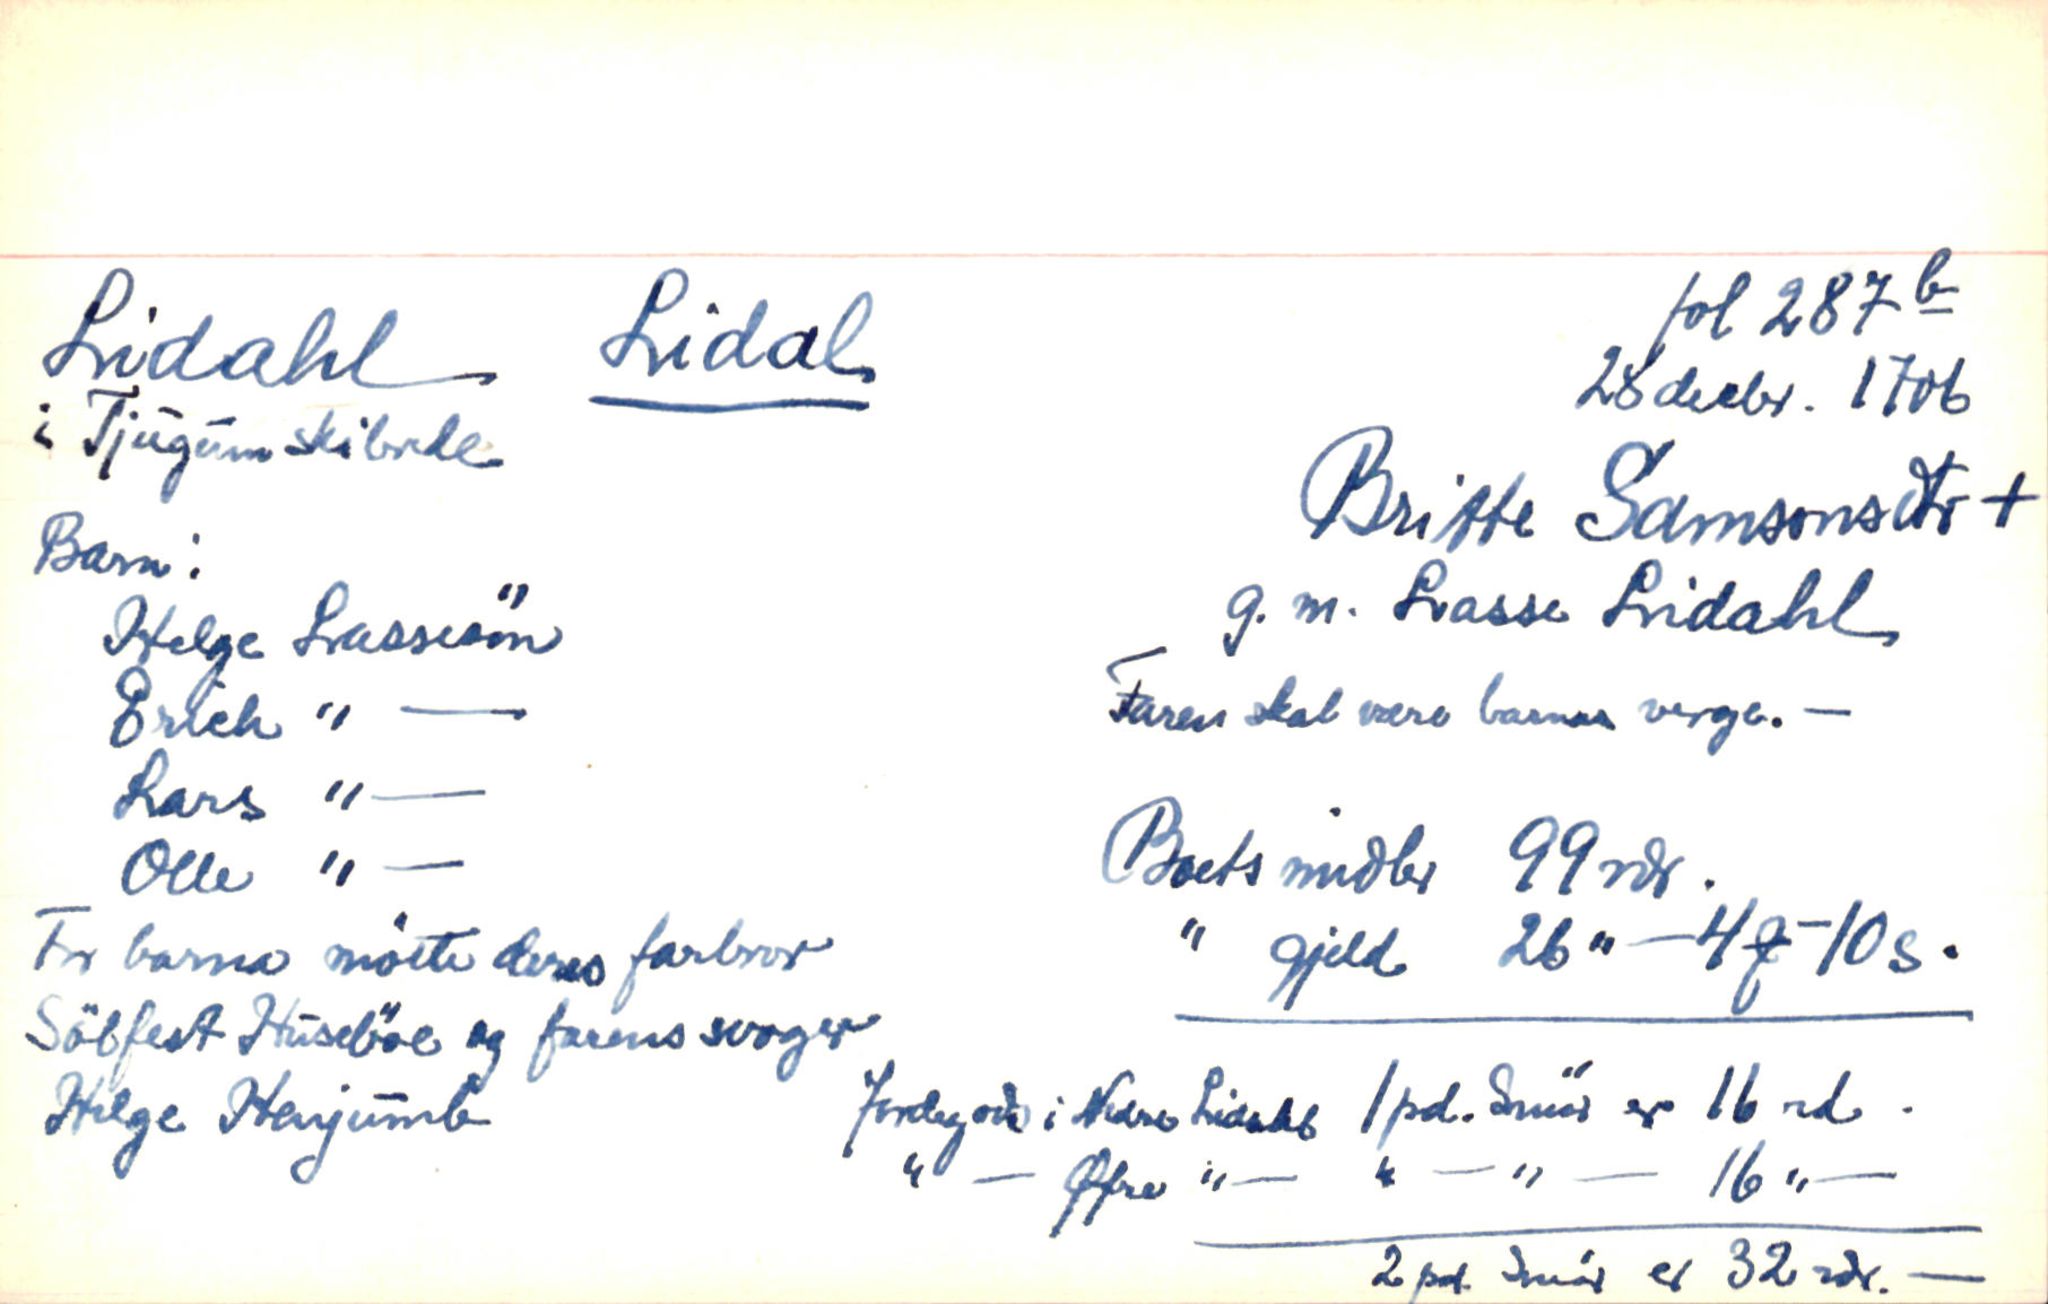 Lidahl Lidal
i Tjugum skibrede
Barn:
Helge Lassesön
Erich " —
Lars " —
Olle " —
For barna mötte deres farbror
Sölfest Huseböe og farens svoger
Helge Henjumb
fol 287 b
28 decbr. 1706
Britte Samsonsdtr +
g. m. Lasse Lidahl
Faren skal være barnas verge. —
Boets midler 99 rdr.
" gjeld 26 " — 4 ƒ — 10 s.
Jordegods i Nedre Lidahl 1 pd. Smör er 16 rd.
" — Øfre " — " — " — 16 " —
2 pd. Smör er 32 rdr. —